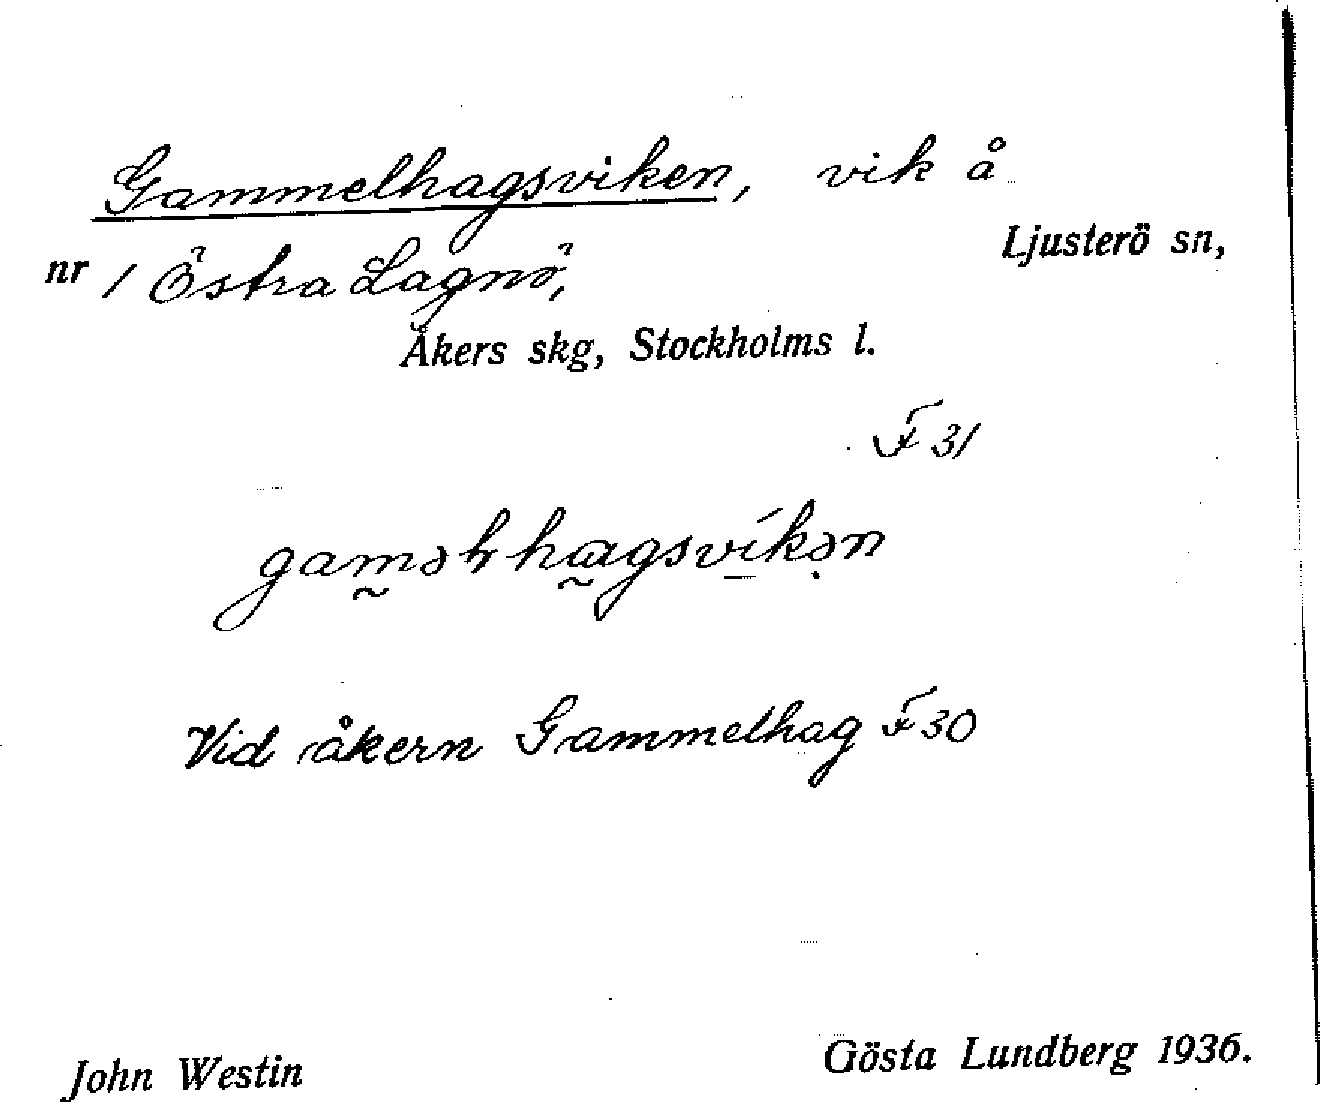 Gammelhagsviken, vik å
Ljusterö sn,
nr 1 Östra Lagnö,
Åkers skg, Stockholms l.
F 31
Vid åkern Gammelhag F 30
John Westin
Gösta Lundberg 1936.